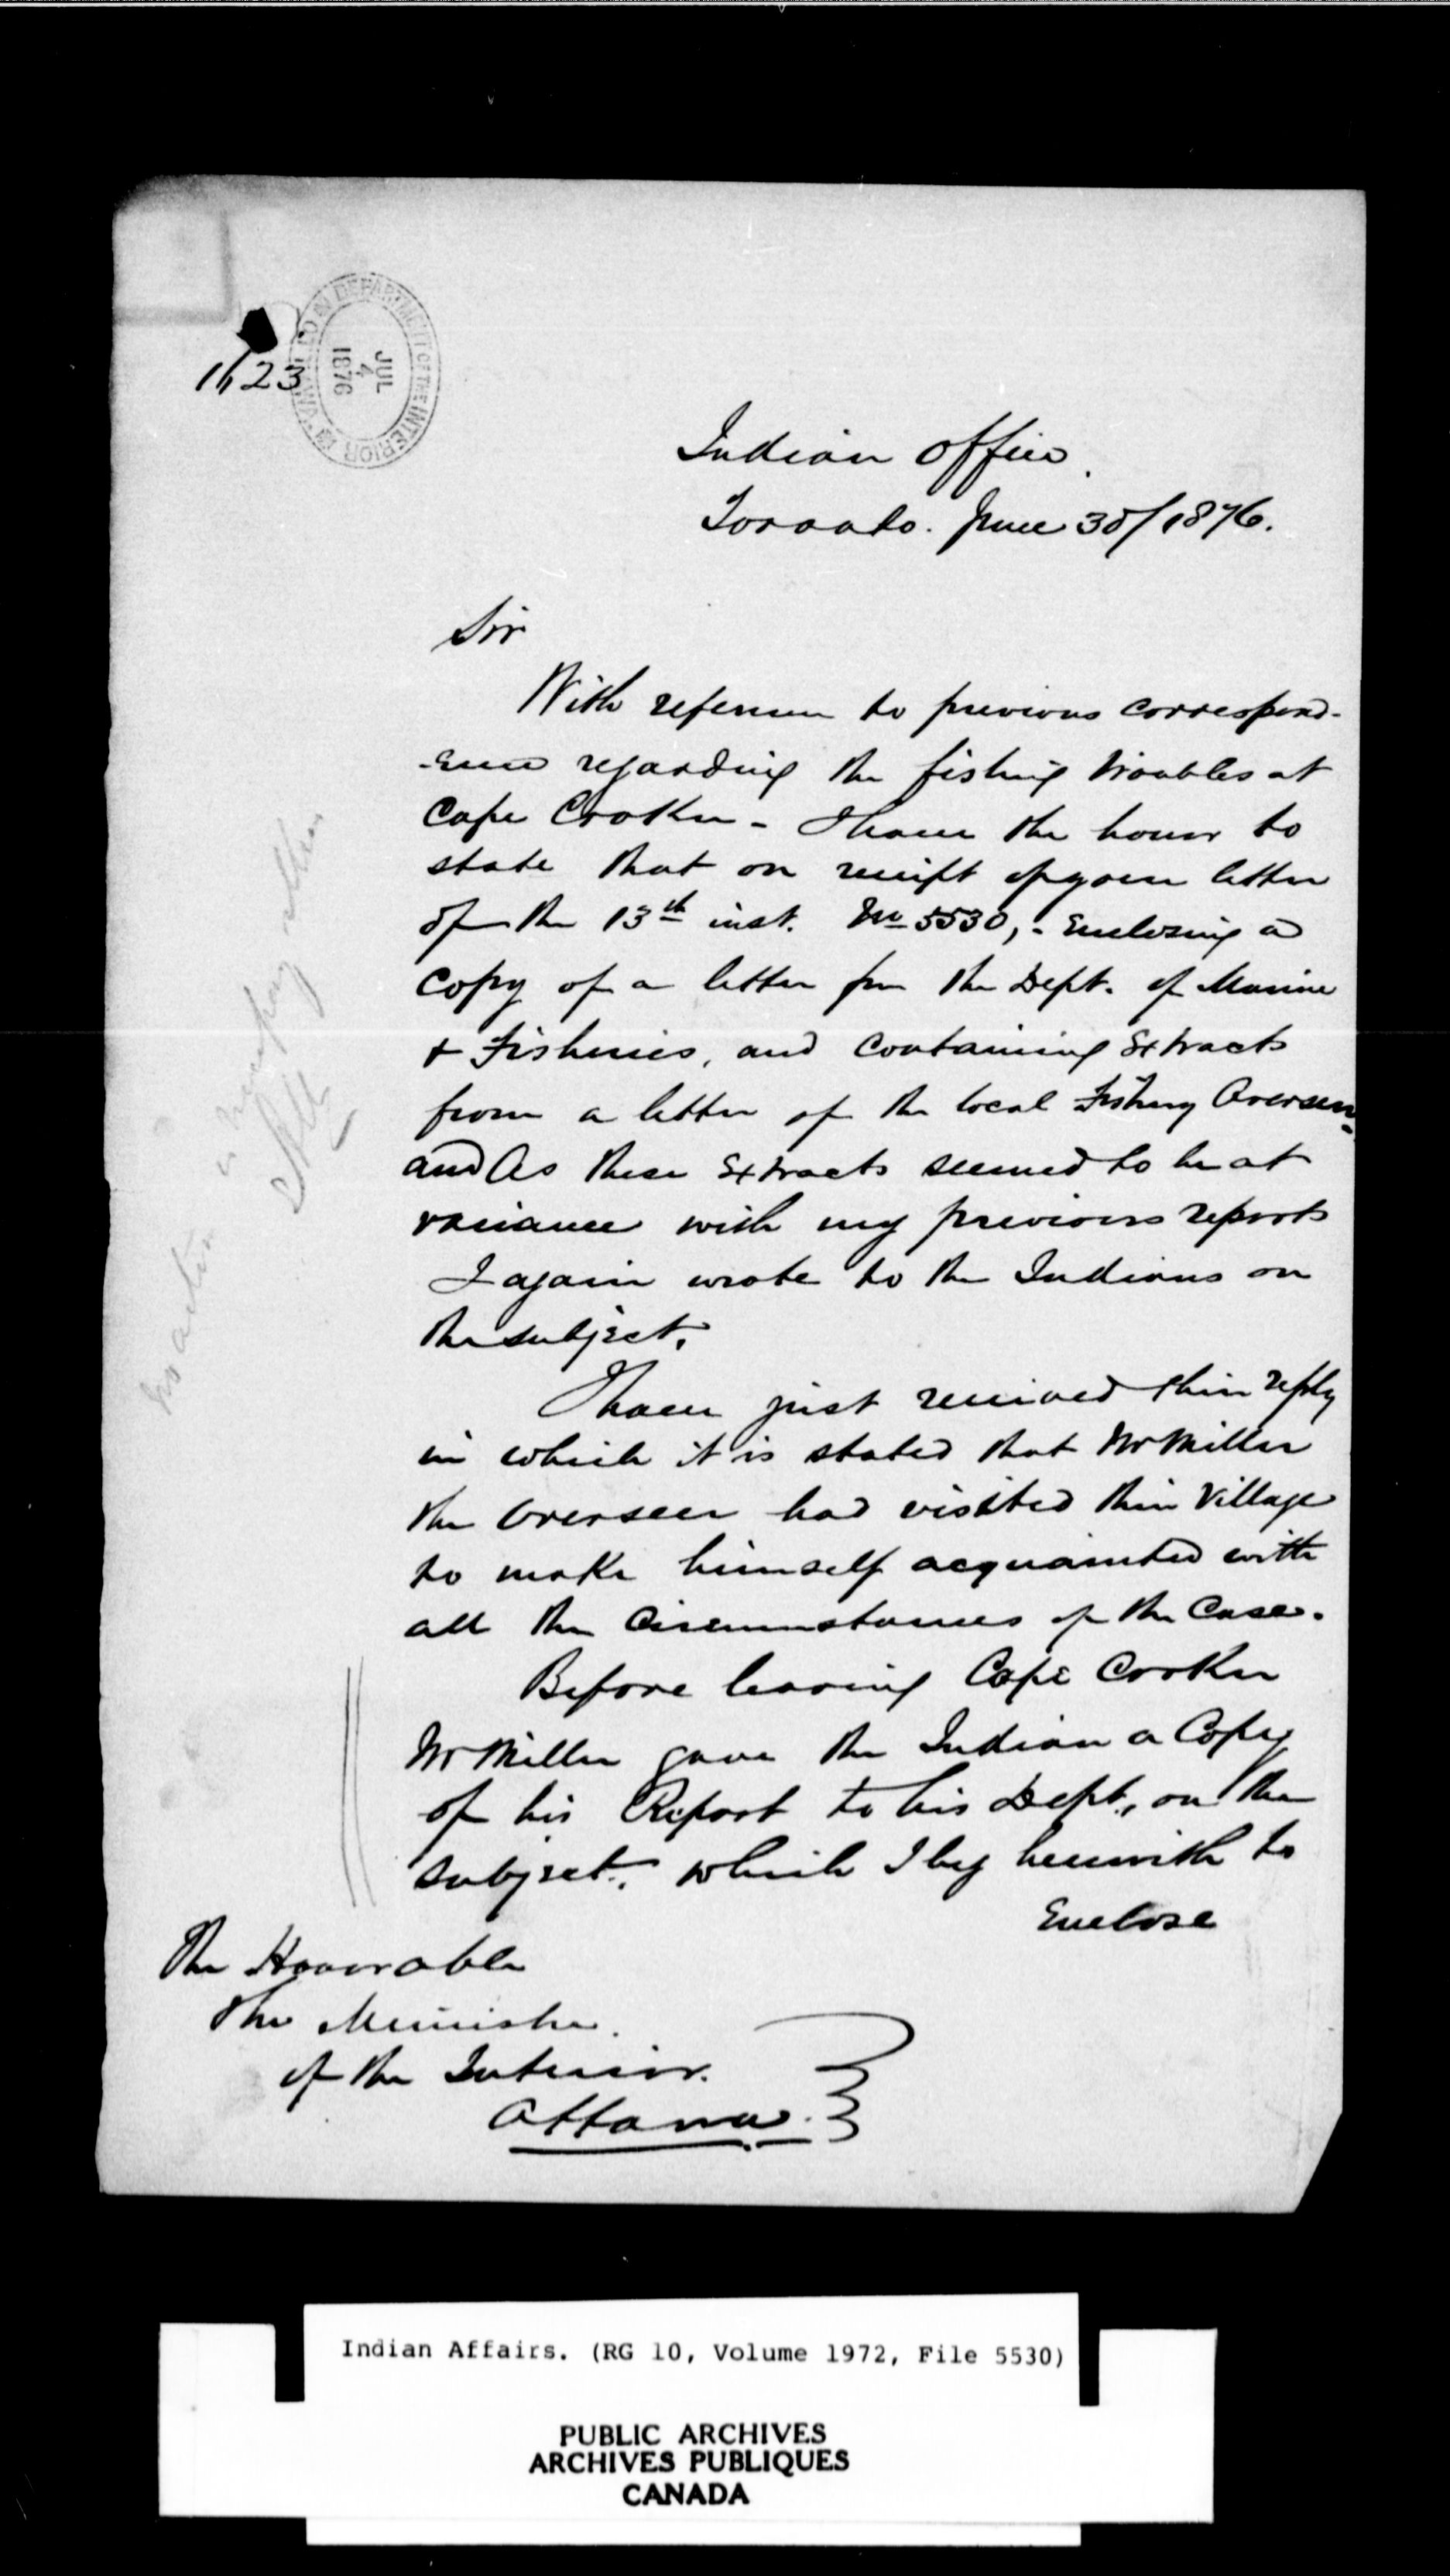 1123
DEPARTMENT OF THE INTERIOR
JUL
4
1876
Indian Office.
Toronto. June 30/1876.
Sir
With reference to previous correspond-
-ence regarding the fishing troubles at
Cape Croker - I have the honor to
state that on receipt of your letter
of the 13th inst. No 5530, - Enclosing a
Copy of a letter from the Dept. of Marine
& Fisheries, and Containing Extracts
from a letter of the local Fishery Overseer,
and As these Extracts seemed to be at
variance with my previous reports
I again wrote to the Indians on
the subject.
I have just received their reply
in which it is stated that Mr Miller
the Overseer had visited their Village
to make himself acquainted with
all the Circumstances of the Case.
Before leaving Cape Croker
Mr Miller gave the Indian a Copy
of his Report to his Dept., on the
subject. which I beg herewith to
Enclose
The Honorable
The Minister.
of the Interior.
Ottawa.
Indian Affairs. (RG 10, Volume 1972, File 5530)
PUBLIC ARCHIVES
ARCHIVES PUBLIQUES
CANADA